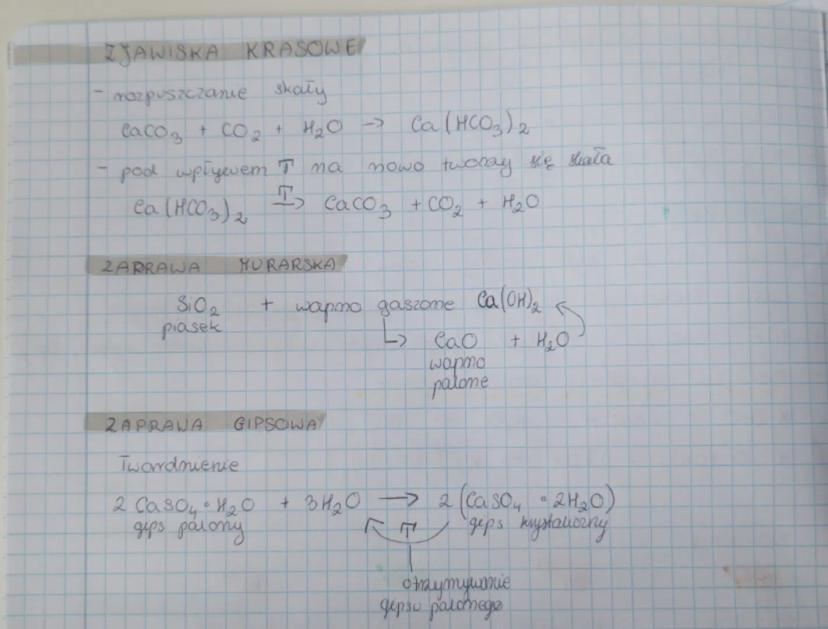 ZJAWISKA KRASOWE
- rozpuszczanie skały
CaCO₃ + CO₂ + H₂O → Ca(HCO₃)₂
- pod wpływem T na nowo tworzy się skała
Ca(HCO₃)₂ T→ CaCO₃ + CO₂ + H₂O
ZAPRAWA MURARSKA
SiO₂ + wapno gaszone Ca(OH)₂
piasek
↳ CaO + H₂O
wapno
palone
ZAPRAWA GIPSOWA
Twardnienie
2 CaSO₄ · H₂O + 3H₂O → 2 (CaSO₄ · 2H₂O)
gips palony gips krystaliczny
T
otrzymywanie
gipsu palonego